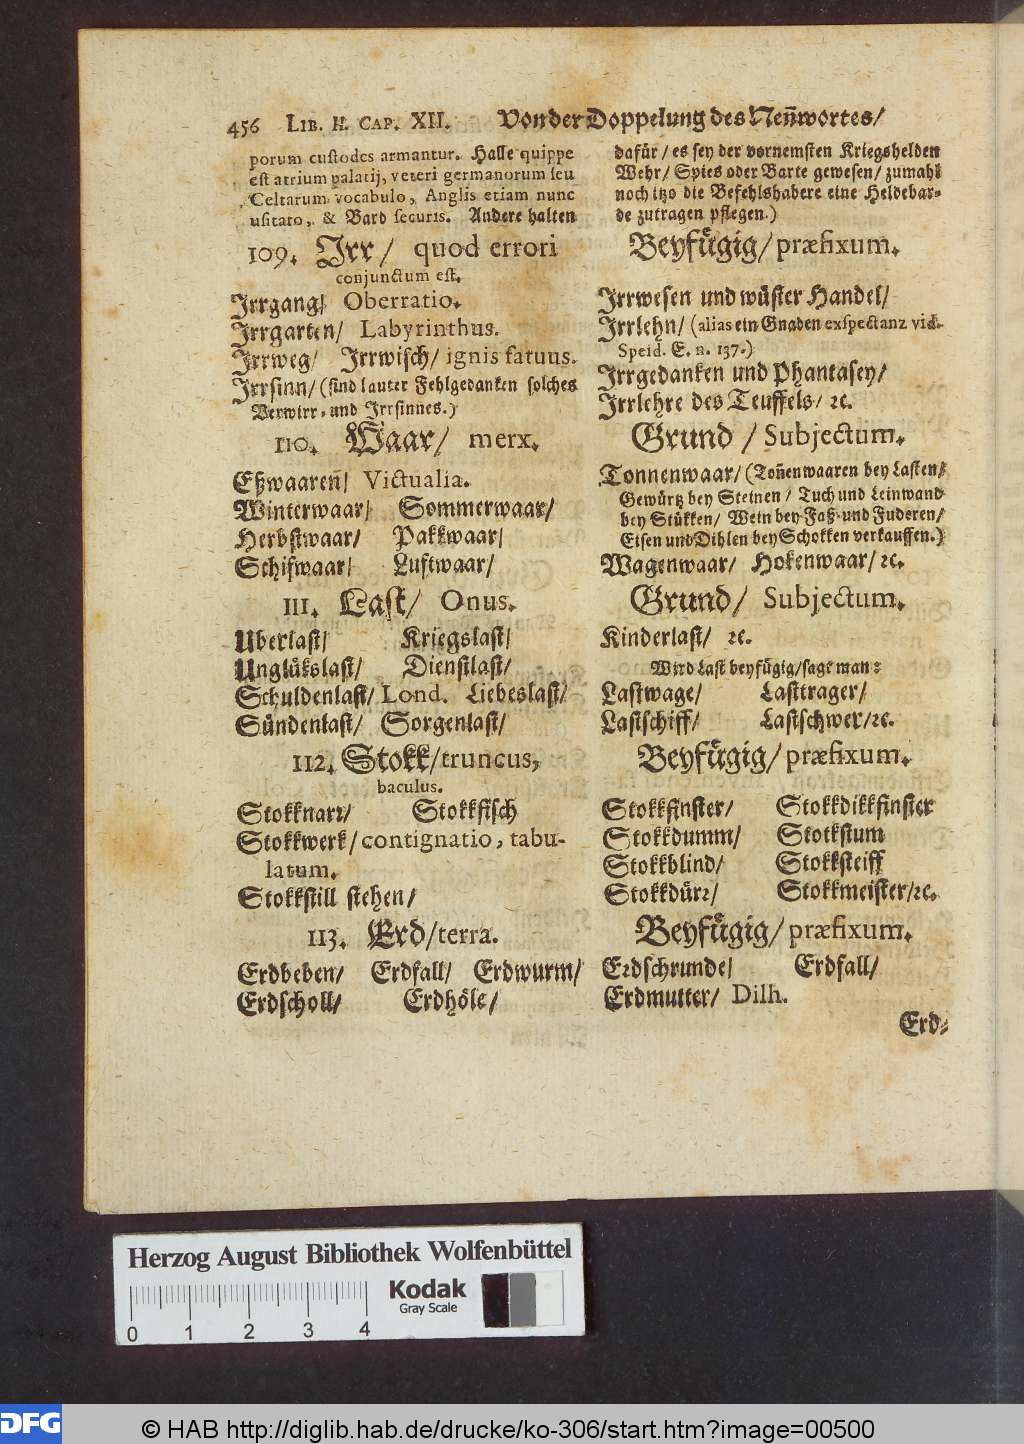 456 LIB. II. CAP. XII. Von der Doppelung des Neñwortes/
porum custodes armantur. Halle quippe
est atrium palatij, veteri germanorum seu
Celtarum vocabulo, Anglis etiam nunc
usitato, & Bard securis. Andere halten
109. Irr/ quod errori
conjunctum est.
Irrgang/ Oberratio.
Irrgarten/ Labyrinthus.
Irrweg/ Irrwisch/ ignis fatuus.
Irrsinn/ (sind lauter Fehlgedanken solches
Verwirr- und Irrsinnes.)
110. Waar/ merx.
Eßwaareñ/ Victualia.
Winterwaar/ Sommerwaar/
Herbstwaar/ Pakkwaar/
Schifwaar/ Luftwaar/
111. Last/ Onus.
Uberlast/ Kriegslast/
Unglükslast/ Dienstlast/
Schuldenlast/ Lond. Liebeslast/
Sündenlast/ Sorgenlast/
112. Stokk/ truncus,
baculus.
Stokknarr/ Stokkfisch
Stokkwerk/ contignatio, tabu-
latum.
Stokkstill stehen/
113. Erd/ terra.
Erdbeben/ Erdfall/ Erdwurm/
Erdscholl/ Erdhöle/
dafür/ es sey der vornemsten Kriegshelden
Wehr/ Spies oder Barte gewesen/ zumahl
noch itzo die Befehlshabere eine Heldebar-
de zutragen pflegen.)
Beyfügig/ præfixum.
Irrwesen und wüster Handel/
Irrlehn/ (alias ein Gnaden exspectanz vid.
Speid. E. n. 137.)
Irrgedanken und Phantasey/
Irrlehre des Teuffels/ ꝛc.
Grund / Subjectum.
Tonnenwaar/ (Toñenwaaren bey Lasten/
Gewürtz bey Steinen/ Tuch und Leinwand
bey Stükken/ Wein bey Faß- und Fuderen/
Eisen und Dihlen bey Schokken verkauffen.)
Wagenwaar/ Hokenwaar/ ꝛc.
Grund/ Subjectum.
Kinderlast/ ꝛc.
Wird Last beyfügig/ sagt man:
Lastwage/ Lasttrager/
Lastschiff/ Lastschwer/ ꝛc.
Beyfügig/ præfixum.
Stokkfinster/ Stokkdikkfinster
Stokkdumm/ Stokstum
Stokkblind/ Stokksteiff
Stokkdürr/ Stokkmeister/ ꝛc.
Beyfügig/ præfixum.
Erdschrunde/ Erdfall/
Erdmutter/ Dilh.
Erd-
Herzog August Bibliothek Wolfenbüttel
Kodak
Gray Scale
0 1 2 3 4
DFG
© HAB http://diglib.hab.de/drucke/ko-306/start.htm?image=00500